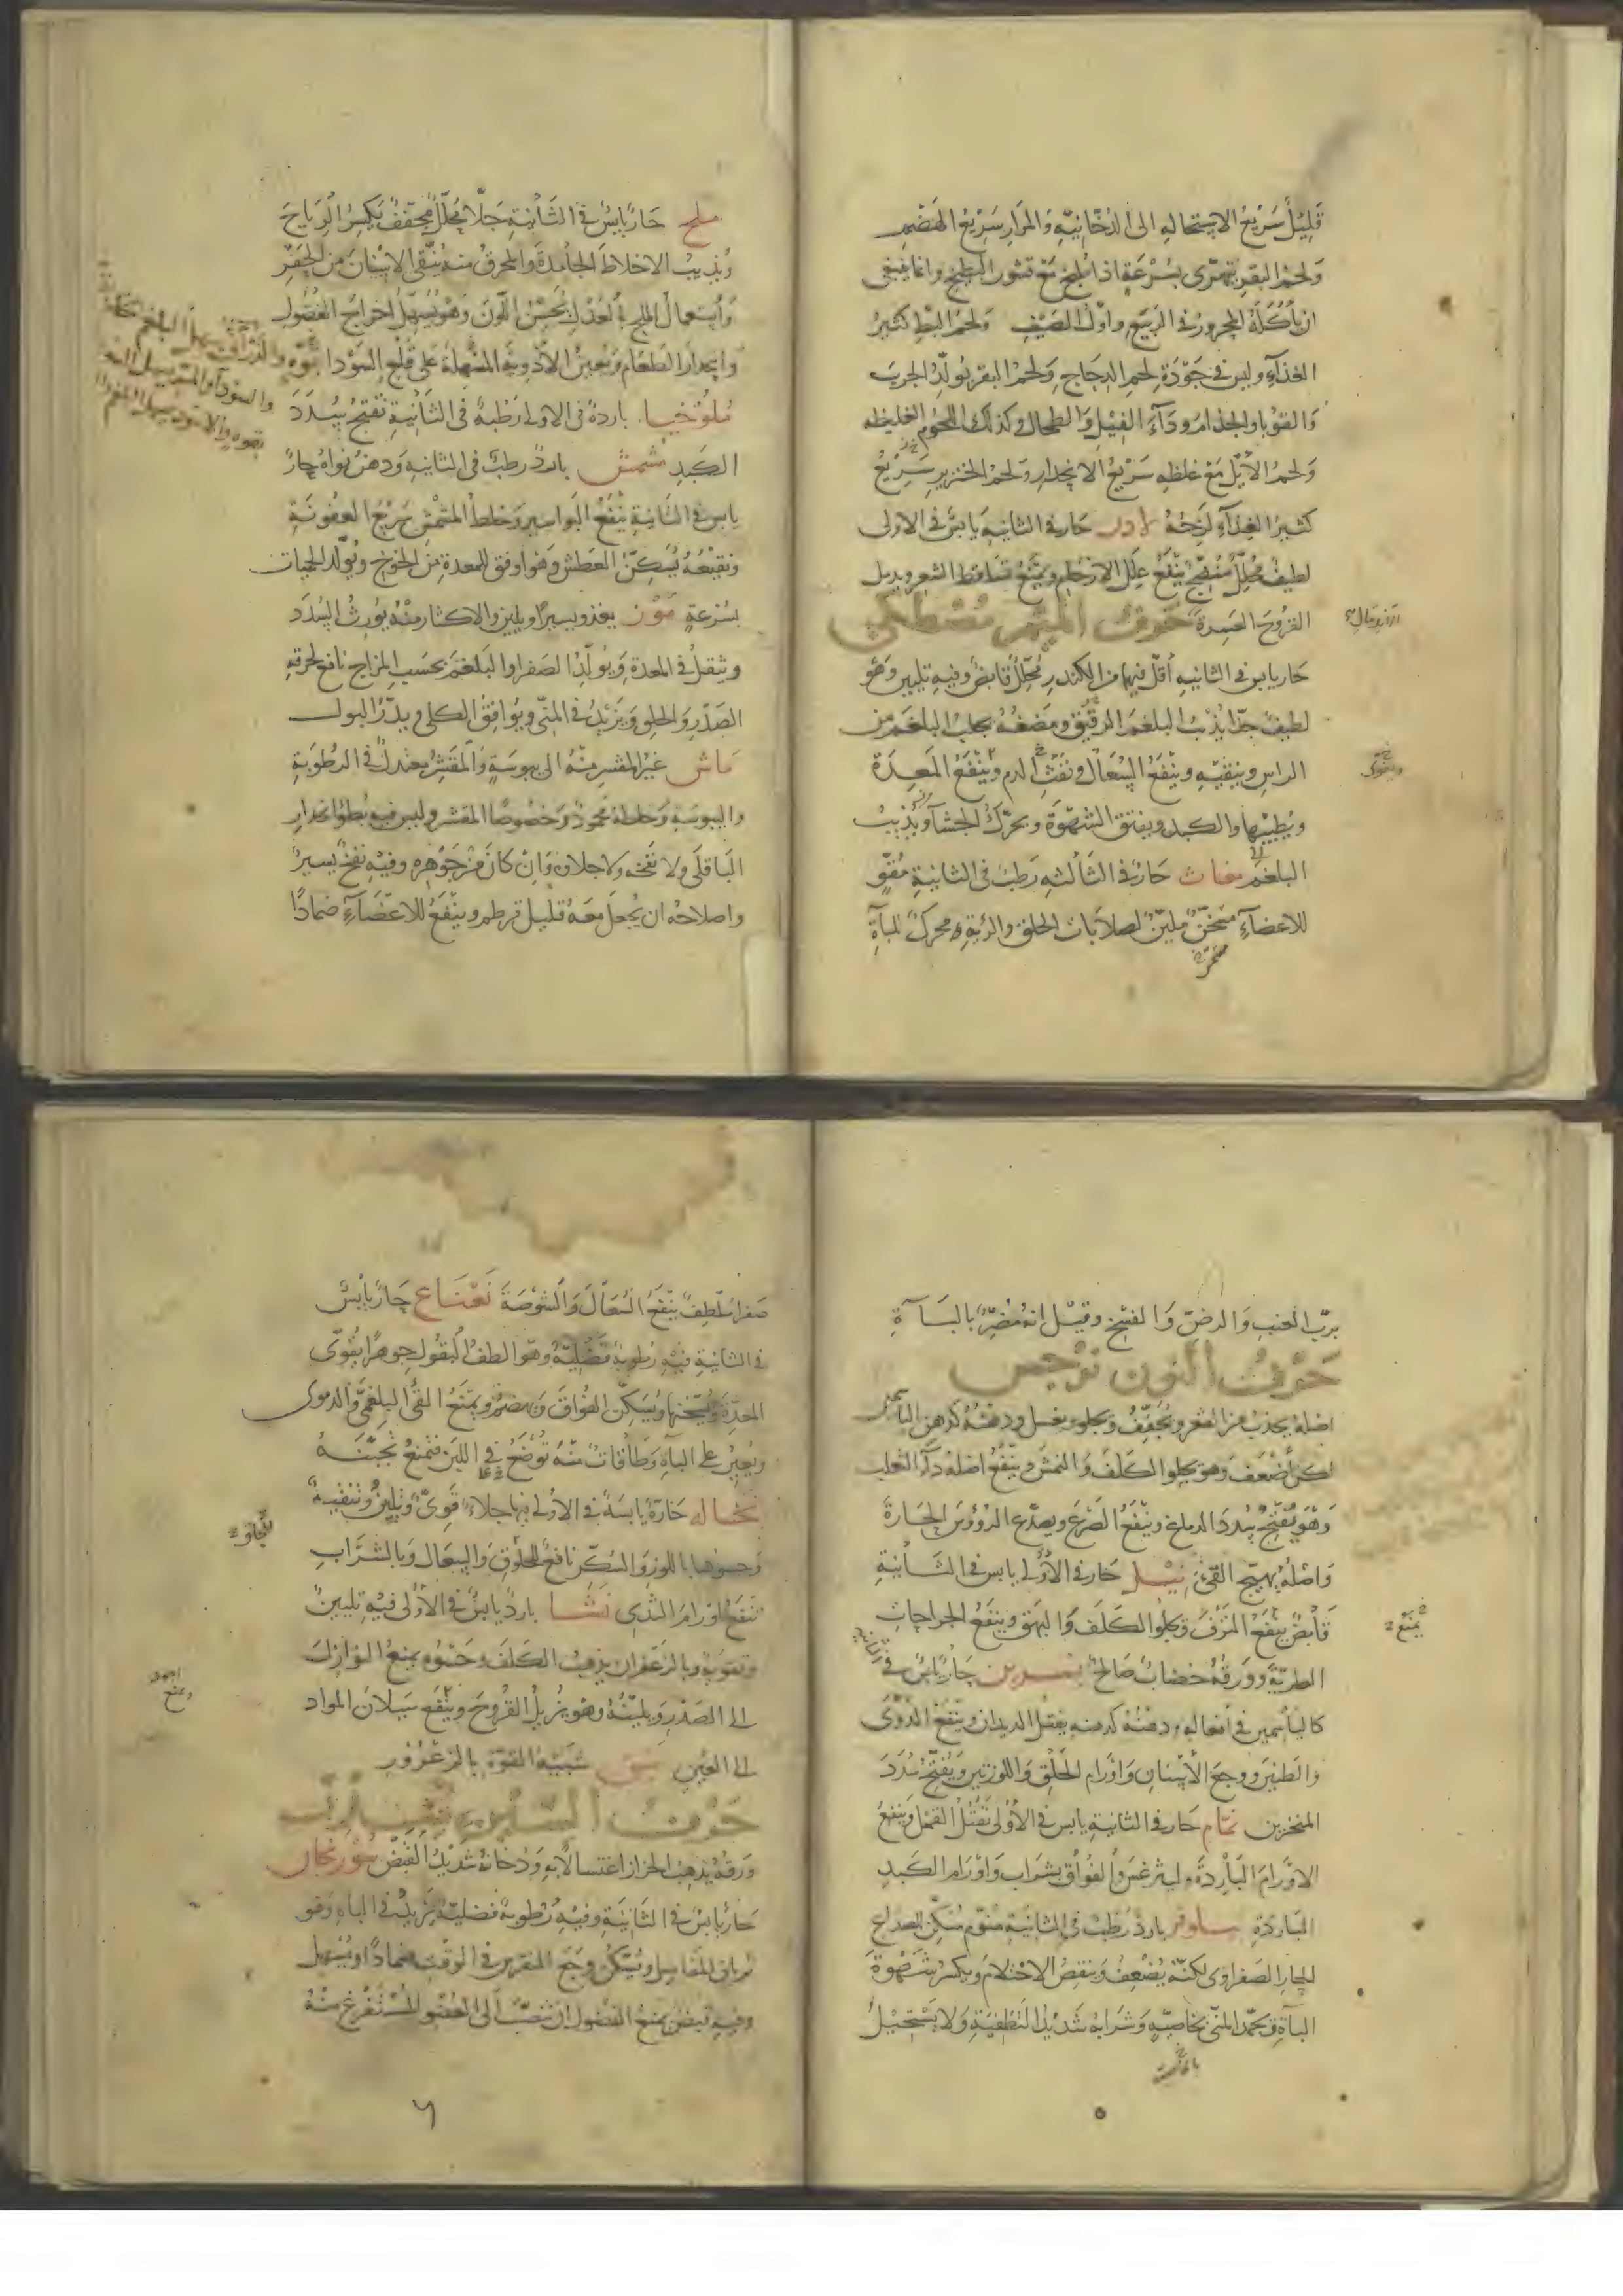 قليل سريع الاستحالة الى الدخانية والمرار سريع الهضم
ولحم البقر يتهرى بسرعة اذا طبخ مع قشور البطيخ وانما ينبغى
ان ياكله المحرور فى الربيع واول الصيف ولحم البط كثير
الغذاء وليس فى جودة لحم الدجاج ولحم البقر يولد الجرب
والقوبا والجذام وداء الفيل والطحال وكذلك اللحوم الغليظه
ولحم الايل مع غلظه سريع الانحدار ولحم الخنزير سريع
كثير الغذاء لزجه لادن حار فى الثانية يابس فى الاولى
لطيف محلل منضج ينفع علل الارحام ويمنع تساقط الشعر ويدمل
القروح العسرة حرف الميم مصطكى
حار يابس فى الثانيه اقل فيهما من الكندر محلل قابض وفيه تليين وهو
لطيف جدا يذيب البلغم الرقيق ومضغه يجلب البلغم من
الراس وينقيه وينفع السعال ونفث الدم وينفع المعدة
ويقوى
ويطيبها والكبد ويفتق الشهوة ويحرك الجشا ويذيب
البلغم مغاث حار فى الثالثه رطب فى الثانية مقو
للاعضاء مسخن ملين لصلابات الحلق والرئة محرك للباءة
ملح حار يابس فى الثانية جلا محلل مجفف يكسر الرياح
ويذيب الاخلاط الجامدة والمحرق منه ينقى الاسنان من الحفر
واستعمال الملح بالعدل يحسن اللون وهو يسهل اخراج الفضول
وانحدار الطعام ويعين الادوية المسهلة على قلع السودا
ملوخيا باردة فى الاولى رطبة فى الثانية تفتح سدد
الكبد مشمش بارد رطب فى الثانيه ودهن نواه حار
يابس فى الثانية ينفع البواسير وخلط المشمش سريع العفونة
ونقيعه يسكن العطش وهو اوفق للمعدة من الخوخ ويولد الحميات
بسرعة موز يغذو يسيرا ويلين والاكثار منه يورث السدد
ويثقل فى المعدة ويولد الصفرا والبلغم بحسب المزاج نافع لحرقة
الصدر والحلق ويزيد فى المنى ويوافق الكلى ويدر البول
ماش غير المقشر منه الى يبوسة والمقشر معتدل فى الرطوبة
واليبوسة وخلطه محمود وخصوصا المقشر وليس فيه بطؤ انحدار
الباقلى ولا نفخه ولا جلاؤه وان كان من جوهره وفيه نفخ يسير
واصلاحه ان يجعل معه قليل قرطم وينفع للاعضاء ضمادا
برب العنب والرض والفسخ وقيل انه مضر بالباءة
حرف النون نرجس
اصله يجذب من القعر ويجفف ويجلو ويغسل ودهنه كدهن الياسمين
لكن اضعف وهو يجلو الكلف والنمش وينفع اصله داء الثعلب
وهو يفتح سدد الدماغ وينفع الصرع ويصدع الرؤوس الحارة
واصله يهيج القئ نيل حار فى الاولى يابس فى الثانية
قابض ينفع النزف ويجلو الكلف والبهق وينفع الجراحات
يمنع
الطرية وورقه خضاب صالح نسرين حار يابس فى
كالياسمين فى افعاله ودهنه كدهنه يقتل الديدان وينفع الدوى
والطنين ووجع الاسنان واورام الحلق واللوزتين ويفتح سدد
المنخرين نمام حار فى الثانية يابس فى الاولى يقتل القمل وينفع
الاورام الباردة وليثرغس والفواق بشراب واورام الكبد
الباردة نيلوفر بارد رطب فى الثانية منوم مسكن للصداع
الحار الصفراوى لكنه يضعف وينقص الاحتلام ويكسر شهوة
الباءة ويجمد المنى بخاصية وشرابه شديد التطفية ولا يستحيل
صفرا ملطف ينفع السعال والشوصة نعناع حار يابس
فى الثانية فيه رطوبة فضلية وهو الطف البقول جوهرا يقوى
المعدة ويسخنها ويسكن الفواق ويهضم ويمنع القئ البلغمى والدموى
ويعين على الباءة وطاقات منه توضع فى اللبن فتمنع تجبنه
نخاله حارة يابسة فى الاولى فيها جلاء قوى وتليين وتنقية
وحسوها باللوز والسكر نافع للحلوق والسعال وبالشراب
تنفع اورام الثدى نشا بارد يابس فى الاولى فيه تليين
وتقوية وبالزعفران يذهب الكلف وحسوه يمنع النوازل
الى الصدر ويلينه وهو يزيل القروح وينفع سيلان المواد
الى العين نبق شبيه القوة بالزعرور
حرف السين
ورقه يذهب الحزاز اغتسالا به ودخانه شديد القبض سورنجان
حار يابس فى الثانية وفيه رطوبة فضلية يزيد فى الباه وهو
ترياق المفاصل ويسكن وجع النقرس فى الوقت ضمادا ويسهل
وفيه قبض يمنع الفضول ان تنصب الى العضو المستفرغ منه